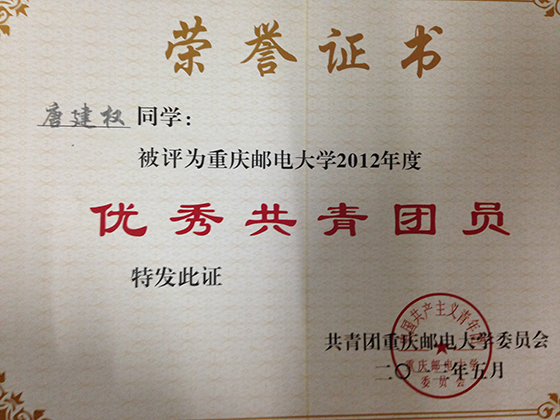 荣誉证书
唐建权同学:
被评为重庆邮电大学2012年度
优秀共青团员
特发此证
共青团重庆邮电大学委员会
二〇一三年五月
中国共产主义青年团
重庆邮电大学
委员会